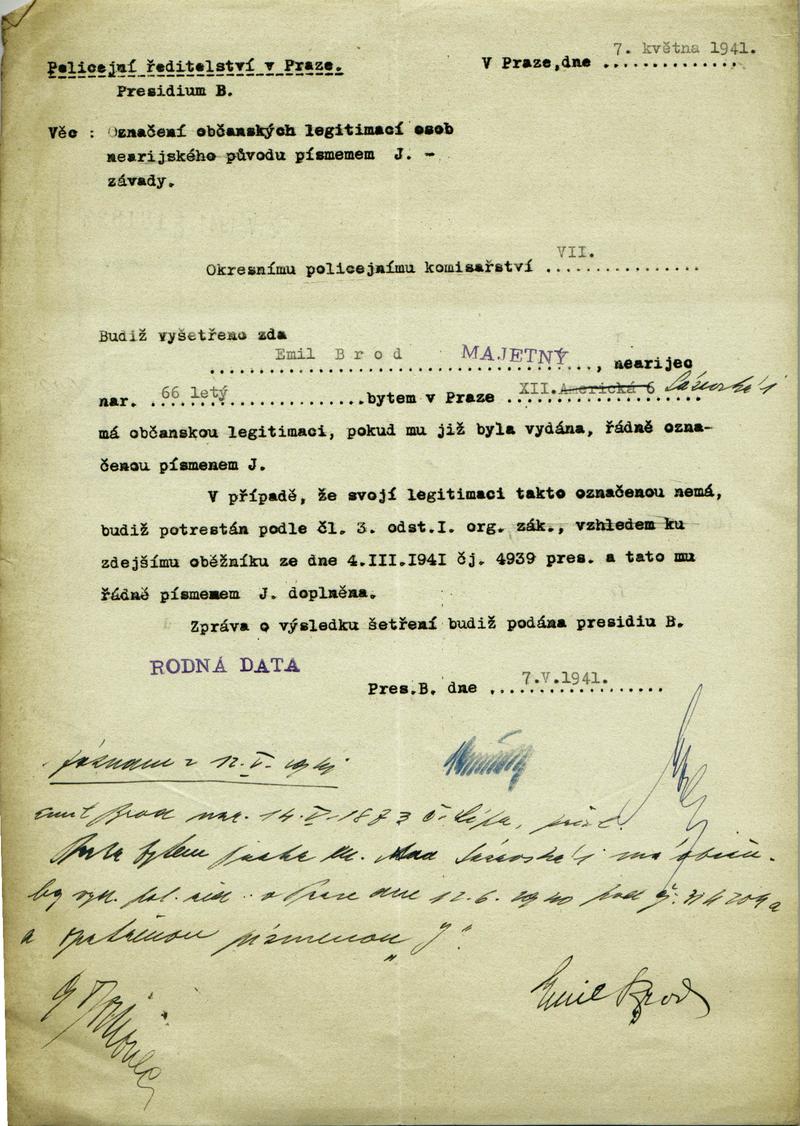 7. května 1941.
Policejní ředitelství v Praze. V Praze, dne ..............
Presidium B.
Věc : Označení občanských legitimací osob
nearijského původu písmemem J. -
závady.
VII.
Okresnímu policejnímu komisařství ................
Budiž vyšetřeno zda
Emil Brod MAJETNÝ
........................................, nearijec
nar. 66 letý bytem v Praze XII. Americká 6 Sázavská 1
má občanskou legitimaci, pokud mu již byla vydána, řádně ozna-
čenou písmenem J.
V případě, že svojí legitimaci takto označenou nemá,
budiž potrestán podle čl. 3. odst.I. org. zák., vzhledem ku
zdejšímu oběžníku ze dne 4.III.1941 čj. 4939 pres. a tato mu
řádně písmenem J. doplněna.
Zpráva o výsledku šetření budiž podána presidiu B.
RODNÁ DATA
7.V.1941.
Pres.B. dne ...................
Záznam z 12. V. 1941
Emil Brod nar. 14. V. 1873 Č. Lípa,
bytem Sázavská 1 má občan.
leg. vyd. pol. řed. v Praze dne 12.6.1940 pod č.
a opatřenou písmenou „J".
Emil Brod